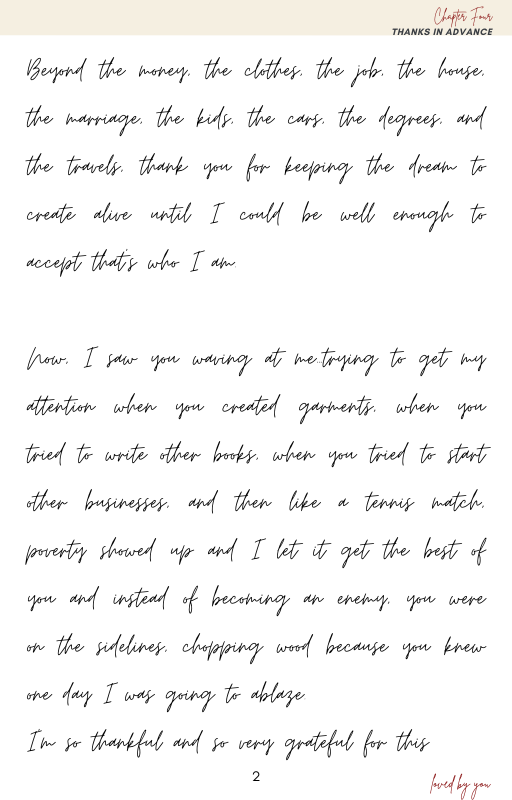 Chapter Four
THANKS IN ADVANCE
Beyond the money, the clothes, the job, the house,
the marriage, the kids, the cars, the degrees, and
the travels, thank you for keeping the dream to
create alive until I could be well enough to
accept that's who I am.
Now, I saw you waving at me...trying to get my
attention when you created garments, when you
tried to write other books, when you tried to start
other businesses, and then like a tennis match,
poverty showed up and I let it get the best of
you and instead of becoming an enemy, you were
on the sidelines, chopping wood because you knew
one day I was going to ablaze.
I'm so thankful and so very grateful for this
2
loved by you